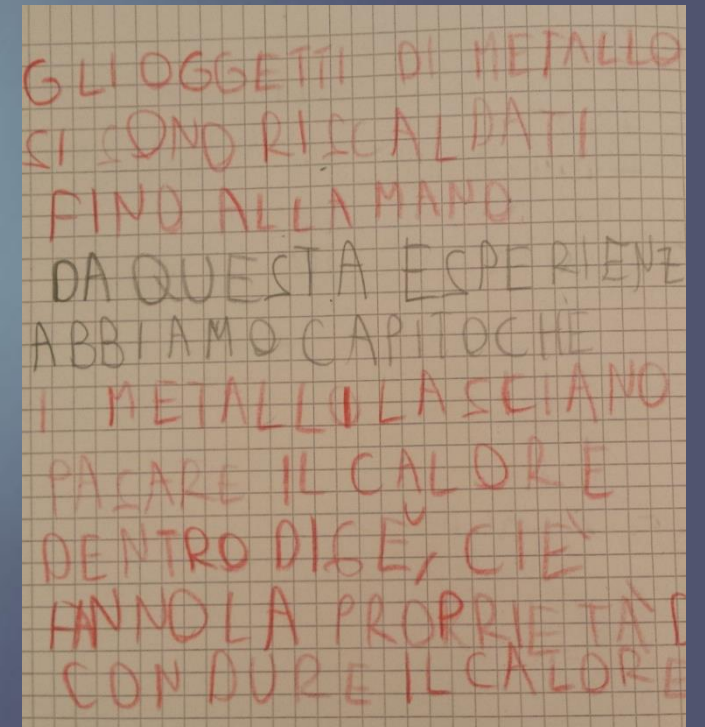 GLI OGGETTI DI METALLO
SI SONO RISCALDATI
FINO ALLA MANO
DA QUESTA ESPERIENZ
ABBIAMO CAPITO CHE
I METALLI LASCIANO
PASARE IL CALORE
DENTRO DI SÈ, CIE
HANNO LA PROPRIETÀ D
CONDURE IL CALORE